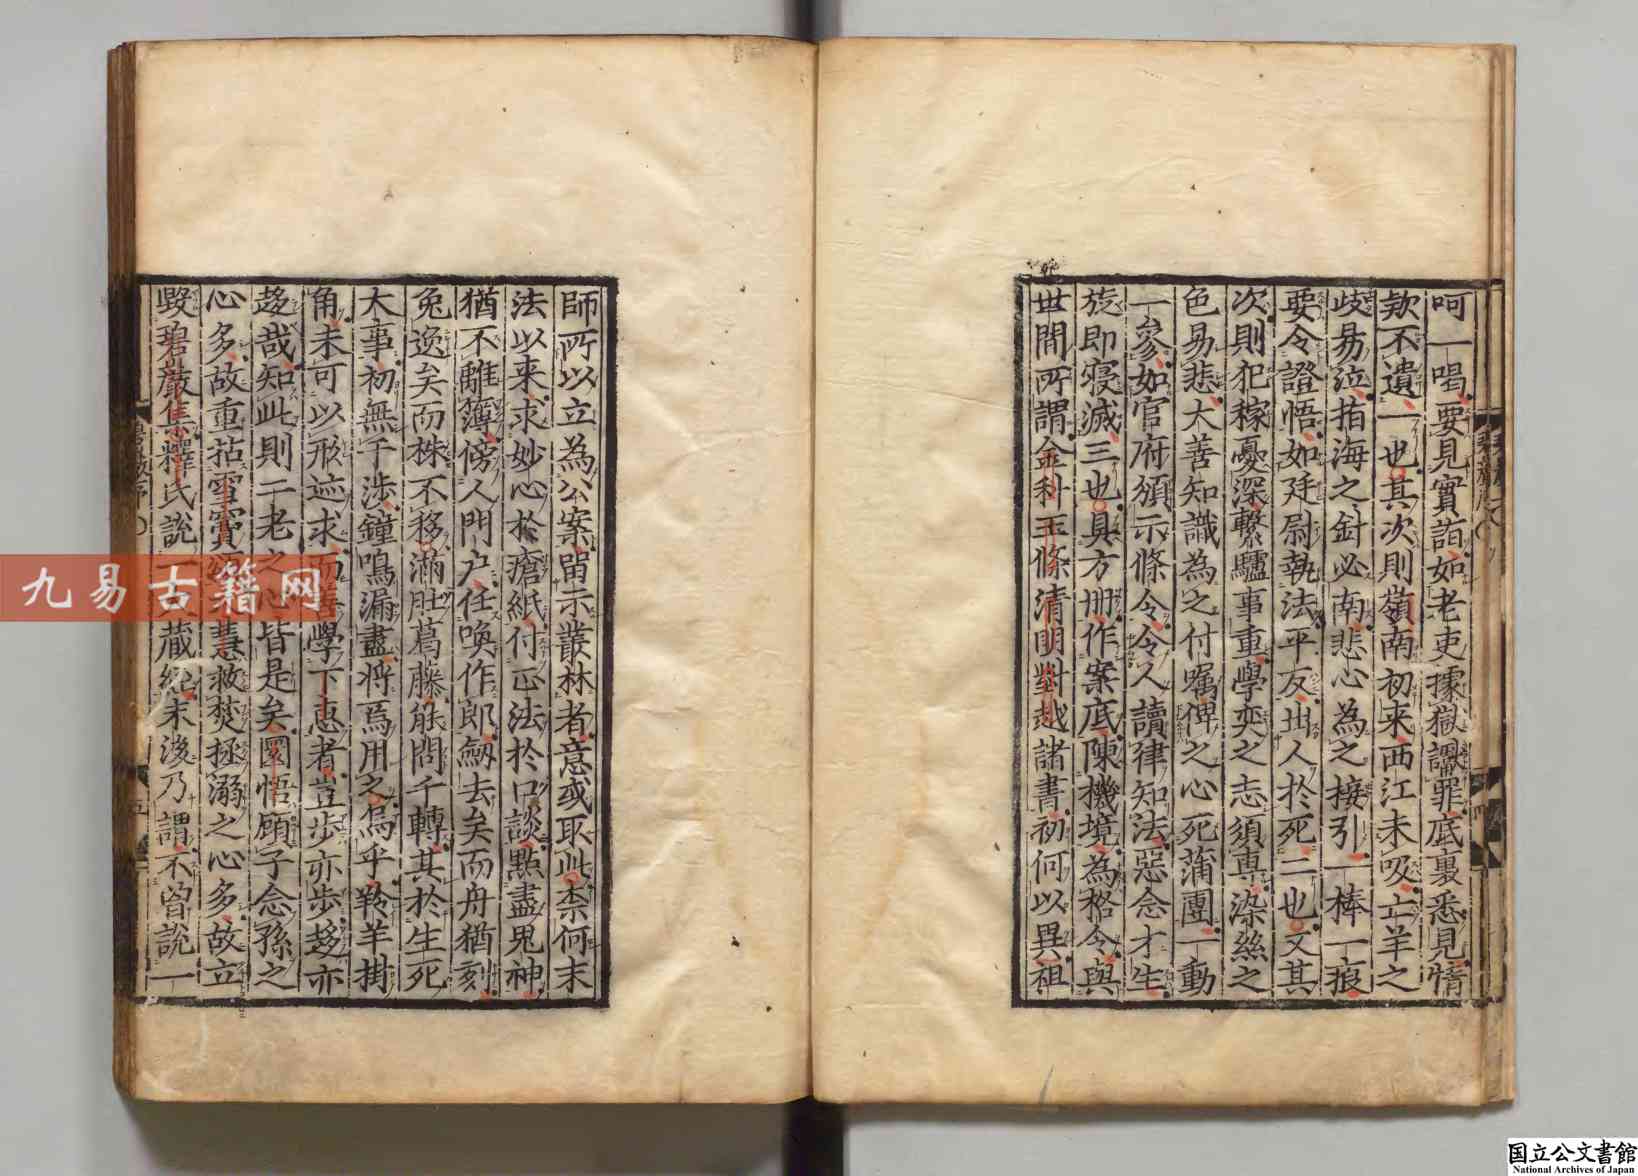 呵一喝要見實詣如老吏據獄讞罪底裏悉見情
款不遺一也其次則嶺南初來西江未吸亡羊之
歧易泣指海之針必南悲心為之接引一棒一痕
要令證悟如廷尉執法平反出人於死二也又其
次則犯稼憂深繫驢事重學奕之志須専染絲之
色易悲大善知識為之付囑俾之心死蒲團一動
一參如官府頒示條令令人讀律知法惡念才生
旋即寝滅三也具方冊作案底陳機境為格令與
世間所謂金科玉條清明對越諸書初何以異祖
師所以立為公案留示叢林者意或取此柰何末
法以来求妙心於瘡紙付正法於口談點盡鬼神
猶不離簿傍人門户任喚作郎劒去矣而舟猶刻
兔逸矣而株不移滿肚葛藤能問千轉其於生死
大事初無干涉鐘鳴漏盡將焉用之烏乎羚羊掛
角未可以形迹求而善學下惠者豈步亦步趍亦
趍哉知此則二老之心皆是矣圜悟顧子念孫之
心多故重拈雪竇頌大慧救焚拯溺之心多故立
毀碧巖集釋氏説一大藏經末後乃謂不曾説一
九易古籍网
国立公文書館
National Archives of Japan